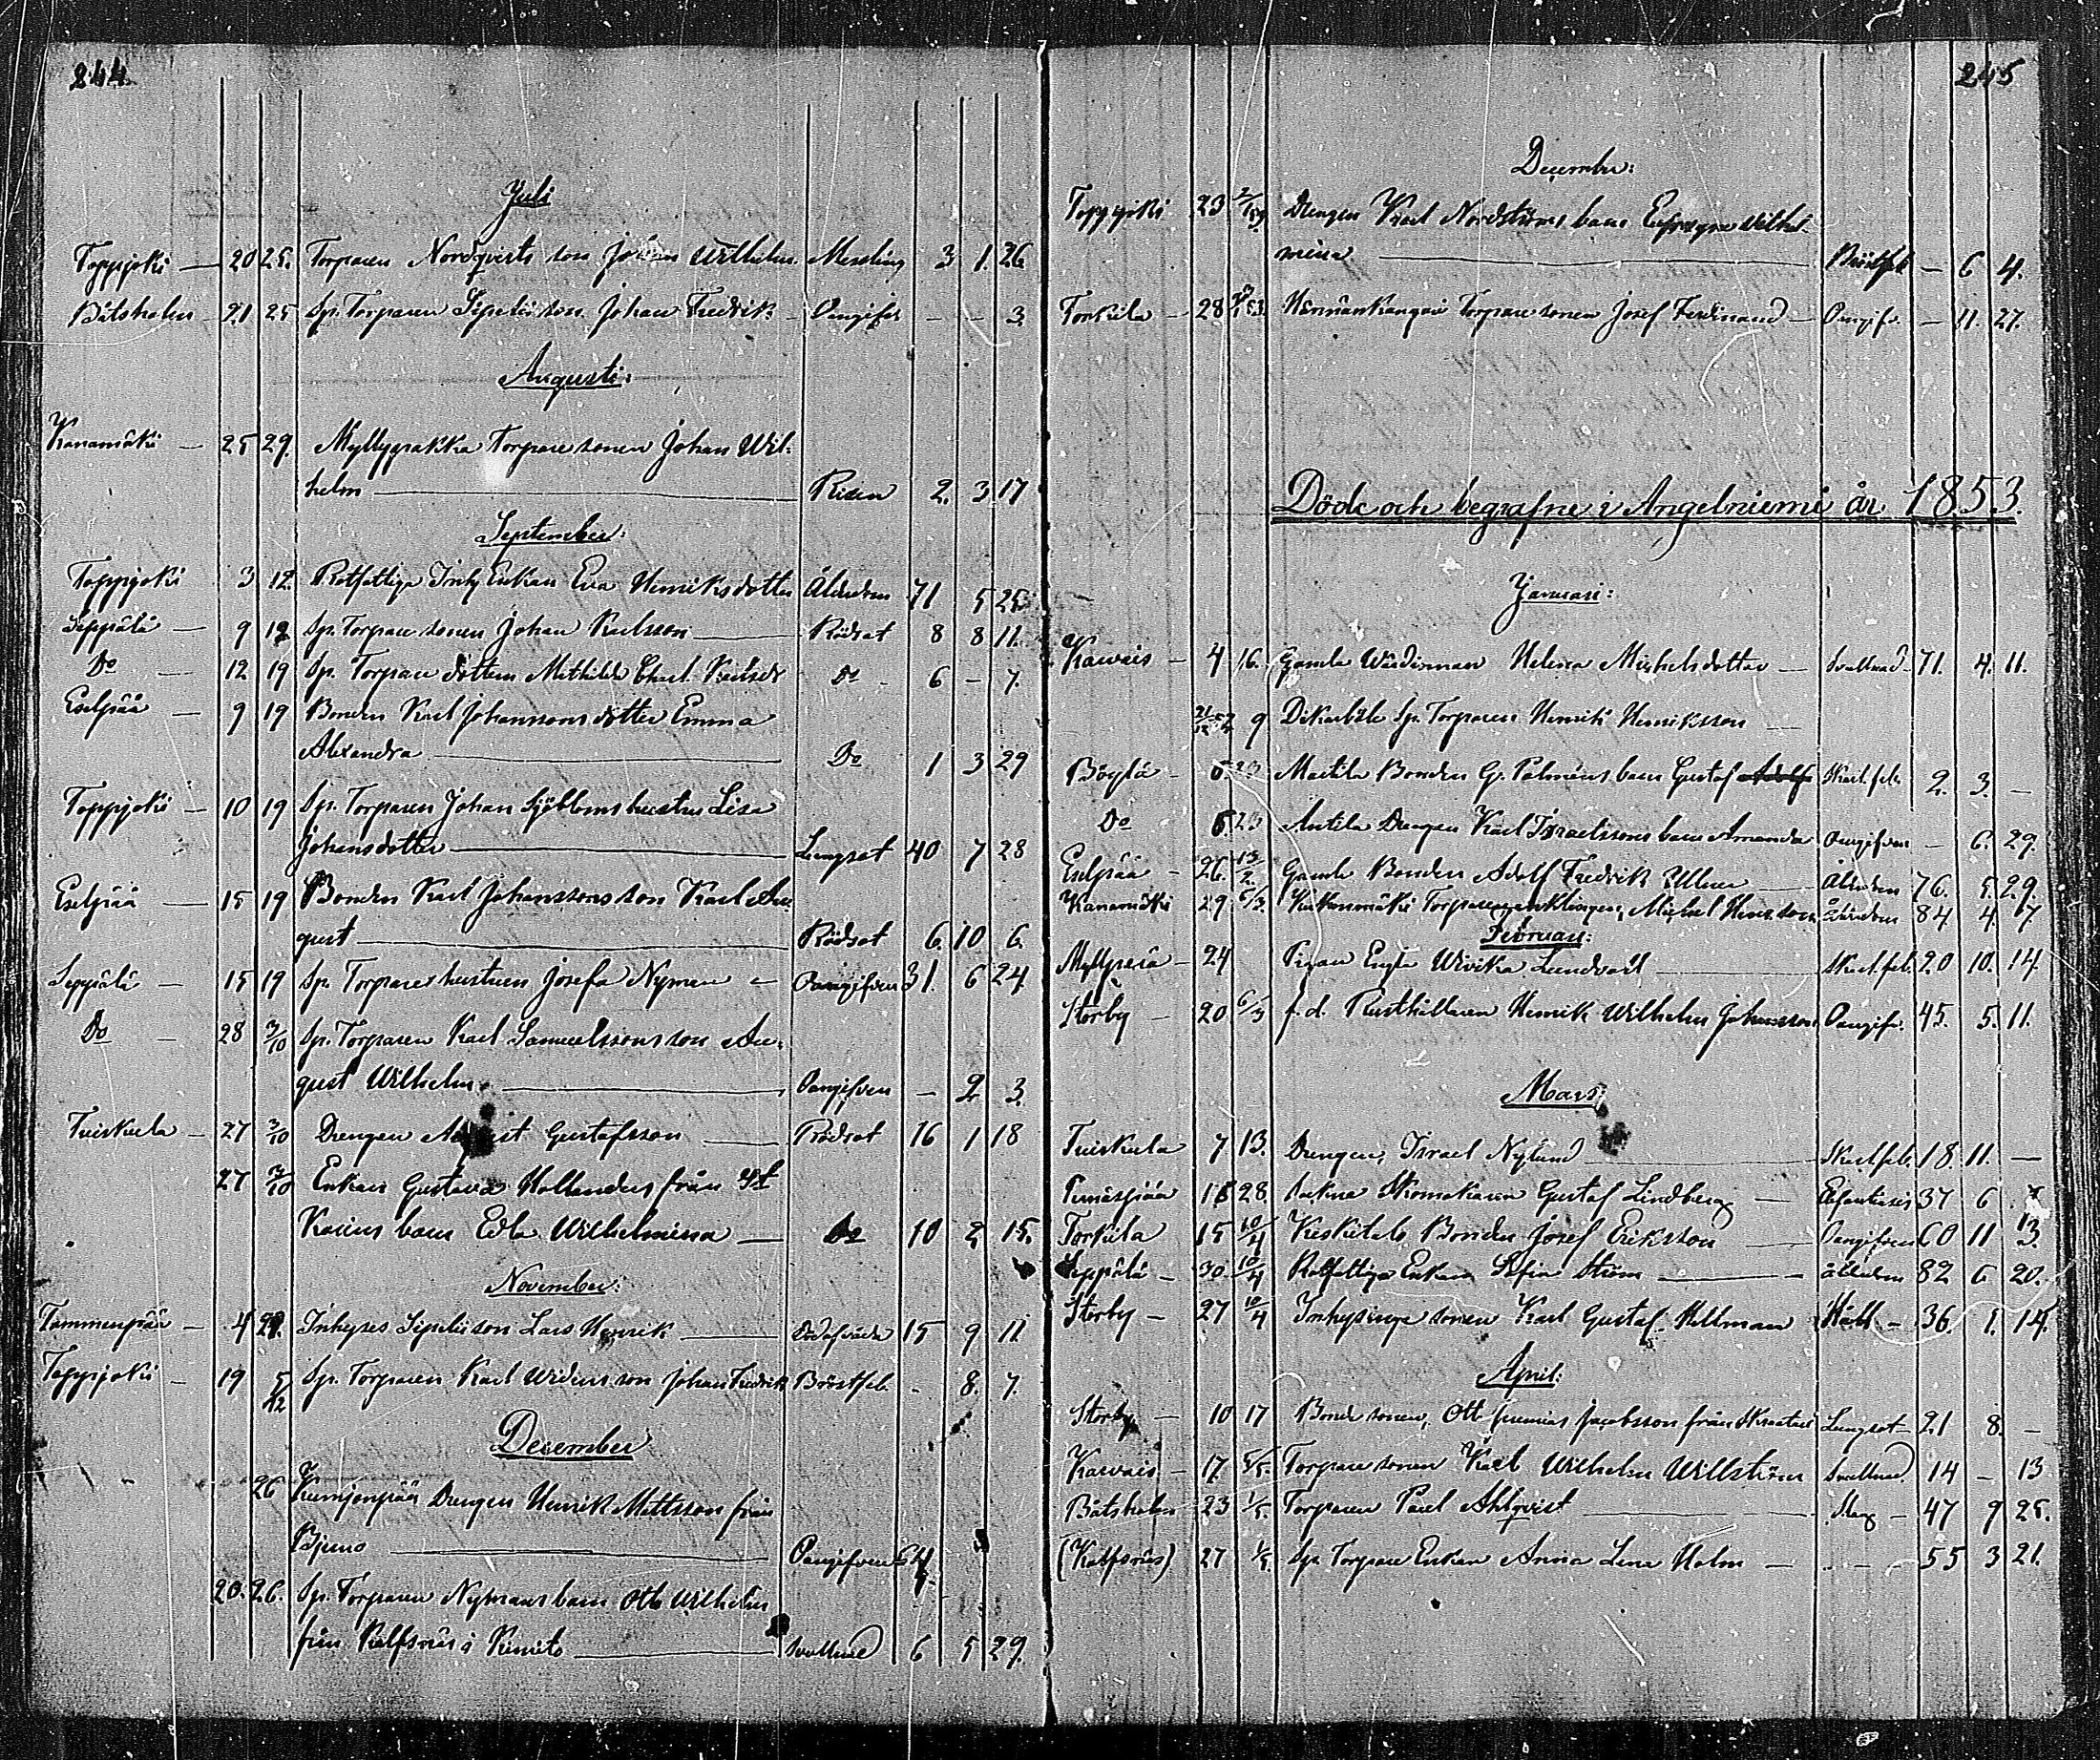 244.
Juli
Toppjoki — 20 25. Torparen Nordqvists son Johan Wilhelm Messling 3 1. 26
Båtsholm 21 25 Sp. Torparen Sipelii son Johan Fredrik Oangifv. — — 3.
Augusti:
Kanamäki — 25 29. Myllypakka Torpare sonen Johan Wil-
helm — 2. 3 17
September:
Toppjoki 3 12. Rotfattiga Inh. Enkan Eva Henriksdotter Ålderdom 71 5 25
Seppälä — 9 12 Sp. Torpare sonen Johan Karlsson — Rödsot 8 8 11.
Do — 12 19 Sp. Torpare dottern Mathilda Charl. Karlsdr Do 6 — 7.
Eselpää — 9 19 Bonden Karl Johanssons dotter Emma
Alexandra — Do 1 3 29
Toppjoki — 10 19 Sp. Torparen Johan Sjöbloms hustru Lisa
Johansdotter — Lungsot 40 7 28
Eselpää — 15 19 Bonden Karl Johanssons son Karl Au-
gust — Rödsot 6. 10 6
Seppälä — 15 19 Sp. Torpare hustrun Josefa Nyman — Oangifven 31. 6 24.
Do — 28 3/10 Sp. Torparen Karl Samuelssons son Au-
gust Wilhelm. — Oangifven — 2 3.
Tuiskula — 27 3/10 Drengen August Gustafsson — Rödsot 16 1 18
27 3/10 Enkan Gustava Hollanders från St
Karins barn Edla Wilhelmina — Do 10 2 15.
November:
Tammenpää — 4 Inhyses Sipelii son Lars Henrik — 15 9 11
Toppjoki — 19 5/12 Sp. Torparen Karl Widens son Johan Fredrik Bröstfeb. - 8. 7.
December
26 Kumjonpää Drengen Henrik Mattsson från
Bjerno — Oangifven
20. 26. Sp. Torparen Nymans barn Otto Wilhelm
från Kalfsnäs i Kimito — Svullnad 6 5 29.
245
December:
Toppjoki 23 Drengen Karl Nordströms barn Eufrosyne Wilhel-
mina — Bröstfeb — 6 4.
Torkila — 28 Hännänkangari Torpare sonen Josef Ferdinand — Oangifv. — 11. 27.
Döde och begrafne i Angelniemi år 1853.
Januari:
Karvais — 4 16. Gamla Wärdinnan Helena Michelsdotter — Svullnad 71. 4. 11.
9 Sp. Torparen Henrik Henriksson —
Böylä — 6 23 Mattila Bonden G. Palméns barn Gustaf Adolf Skarl.feb. 2. 3. —
Do 6 23 Antila Drengen Karl Israelssons barn Amanda Oangifven — 6. 29.
Eselpää — 26. 13/2. Gamla Bonden Adolf Fredrik Ullner — Ålderdom 76. 5. 29.
Kanamäki 29 6/3. Michel Ålderdom 84 4. 17
Februari:
Myllyperä — 24 Pigan Engla Wivika Lundvall — Skarl.feb. 20 10. 14.
Storby — 20 6/3 f.d. Rusthållaren Henrik Wilhelm Johansson Oangifv. 45. 5. 11.
Mars:
Tuiskula 7 13. Drengen, Israel Nylund — Skarl.feb. 18. 11. —
Pernäspää 16 28 Sockne Skomakaren Gustaf Lindberg — Elefantiasis 37 6
Torkila 15 10/4 Keskitalo Bonden Josef Eriksson — Oangifven 60 11 13.
Seppälä — 30 10/4 Rotfattiga Enkan Sofia Ström — Ålderdom 82 6 20.
Storby — 27 10/4 Inhysinge sonen Karl Gustaf Hellman Håll — 36. 1. 14.
April:
Storby — 10 17 Bonde sonen, Otto Jeremias Jacobsson från Lungsot 21 8. —
Karvais — 17 5/5. Torpare sonen Karl Wilhelm Willström Svullnad 14 — 13
Båtsholm 23 1/5. Torparen Paul Ahlqvist — Slag — 47 9 25.
(Kalfsnäs) 27 1/5. Sp. Torpare Enkan Anna Lena Holm — 55 3 21.